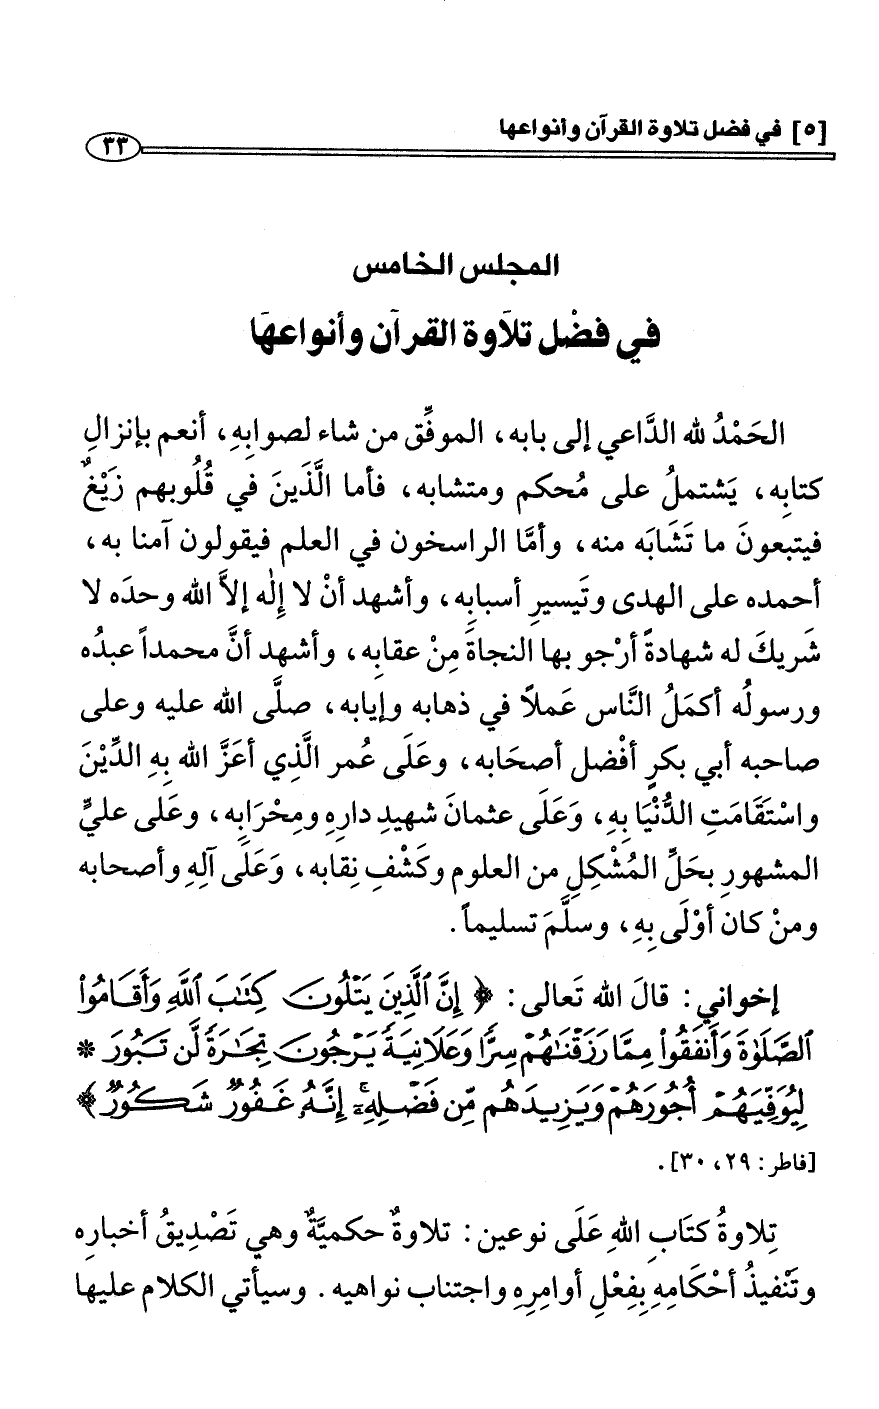 [٥] في فضل تلاوة القرآن وأنواعها
٣٣
المجلس الخامس
في فضْل تلاَوة القرآن وأنواعهَا
الحَمْدُ لله الدَّاعي إلى بابه، الموفِّق من شاء لصوابِهِ، أنعم بإنزالِ
كتابِه، يَشتملُ على مُحكم ومتشابه، فأما الَّذينَ في قُلُوبهم زَيْغٌ
فيتبعونَ ما تَشَابَه منه، وأمَّا الراسخون في العلم فيقولون آمنا به،
أحمده على الهدى وتَيسيرِ أسبابِه، وأشهد أنْ لا إِلٰه إلاَّ الله وحدَه لا
شَريكَ له شهادةً أرْجو بها النجاةَ مِنْ عقابِه، وأشهد أنَّ محمداً عبدُه
ورسولُه أكمَلُ النَّاس عَملاً في ذهابه وإيابه، صلَّى الله عليه وعلى
صاحبه أبي بكرٍ أفْضل أصحَابه، وعلَى عُمر الَّذِي أعَزَّ الله بِهِ الدِّيْنَ
واسْتَقَامَتِ الدُّنْيَا بِهِ، وَعَلَى عثمانَ شهيدِ دارِه ومِحْرَابِه، وعَلى عليٍّ
المشهورِ بحَلِّ المُشْكِلِ من العلوم وكَشْفِ نِقابه، وَعَلَى آلِهِ وأصحابه
ومنْ كان أوْلَى بِهِ، وسلَّمَ تسليماً.
إخواني: قالَ الله تَعالى: ﴿ إِنَّ ٱلَّذِينَ يَتْلُونَ كِتَٰبَ ٱللَّهِ وَأَقَامُوا۟
ٱلصَّلَوٰةَ وَأَنفَقُوا۟ مِمَّا رَزَقْنَٰهُمْ سِرًّا وَعَلَانِيَةً يَرْجُونَ تِجَٰرَةً لَّن تَبُورَ *
لِيُوَفِّيَهُمْ أُجُورَهُمْ وَيَزِيدَهُم مِّن فَضْلِهِۦٓ ۚ إِنَّهُۥ غَفُورٌ شَكُورٌ ﴾
[فاطر: ٢٩، ٣٠].
تِلاوةُ كتَابِ اللهِ عَلَى نوعين: تلاوةٌ حكميَّةٌ وهي تَصْدِيقُ أخباره
وتَنْفيذُ أحْكَامِهِ بِفِعْلِ أوامِرِهِ واجتناب نواهيه. وسيأتي الكلام عليها